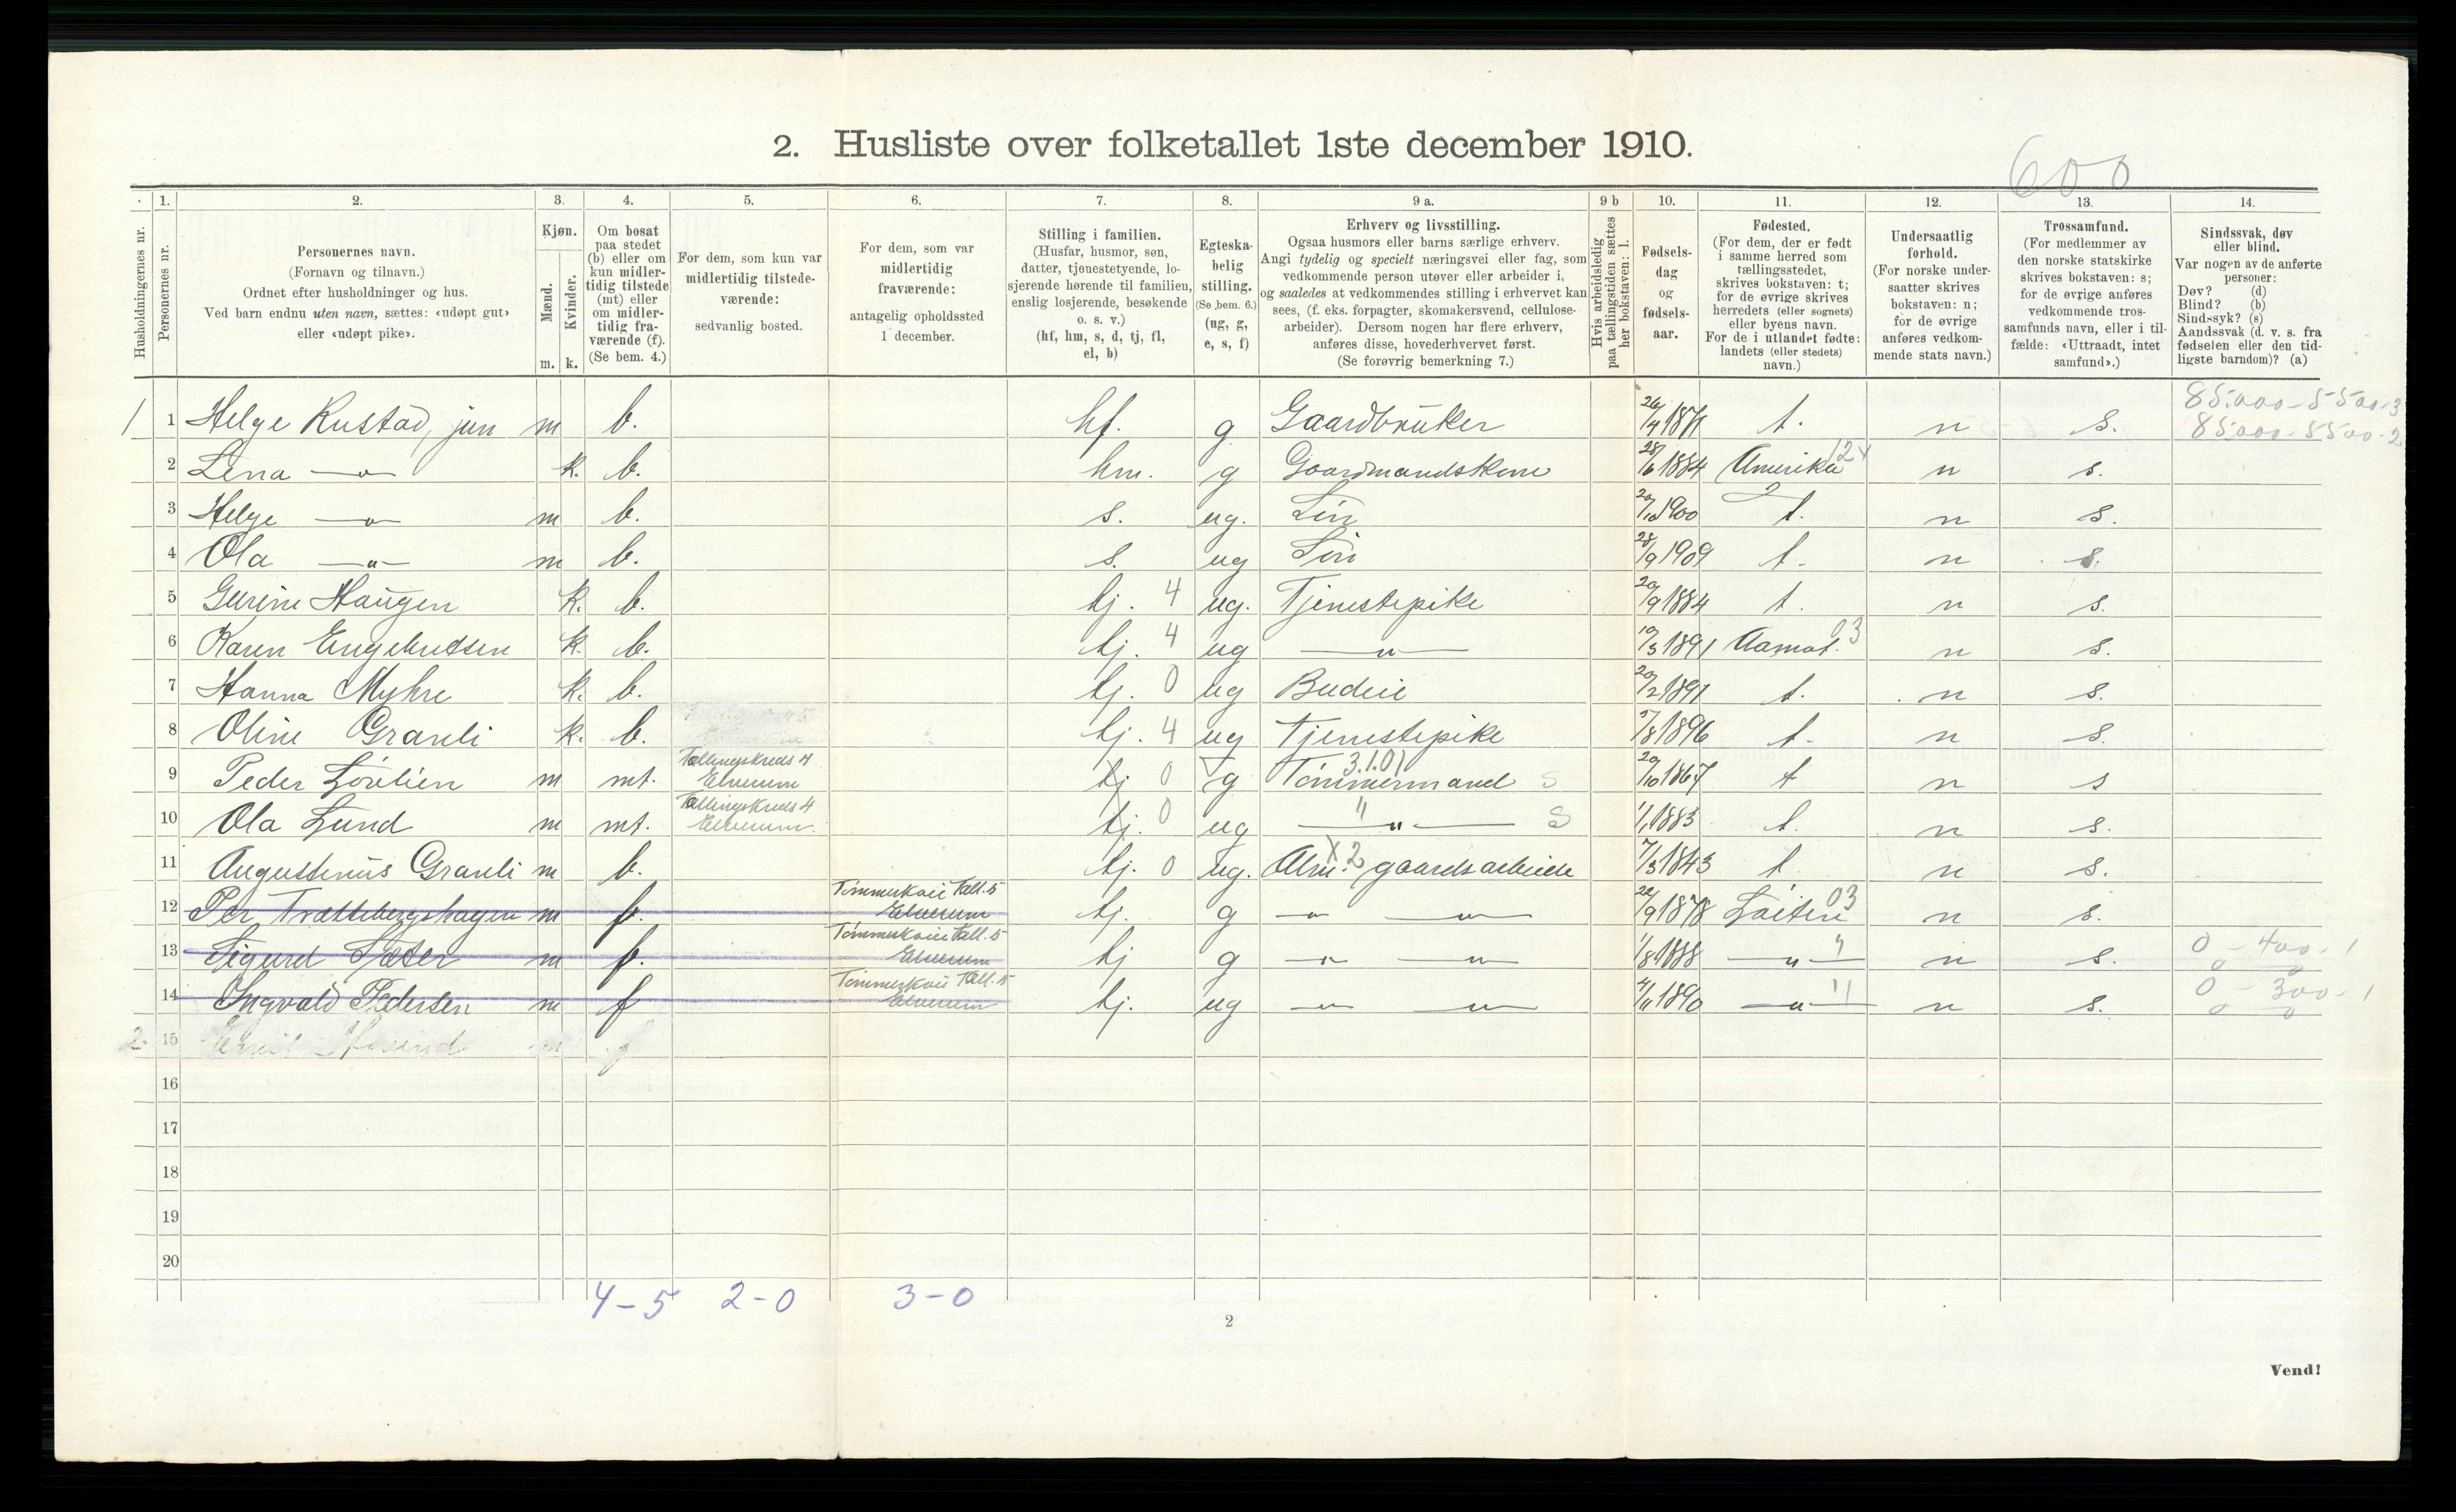 2. Husliste over folketallet 1ste december 1910.
600
1. 2. 3. 4. 5. 6. 7. 8. 9 a. 9 b 10. 11. 12. 13. 14.
Husholdningernes nr.
Personernes nr.
Personernes navn.
(Fornavn og tilnavn.)
Ordnet efter husholdninger og hus.
Ved barn endnu uten navn, sættes: «udøpt gut»
eller «udøpt pike».
Kjøn.
Mænd.
Kvinder.
m. k.
Om bosat
paa stedet
(b) eller om
kun midler-
tidig tilstede
(mt) eller
om midler-
tidig fra-
værende (f).
(Se bem. 4.)
For dem, som kun var
midlertidig tilstede-
værende:
sedvanlig bosted.
For dem, som var
midlertidig
fraværende:
antagelig opholdssted
1 december.
Stilling i familien.
(Husfar, husmor, søn,
datter, tjenestetyende, lo-
sjerende hørende til familien,
enslig losjerende, besøkende
o. s. v.)
(hf, hm, s, d, tj, fl,
el, b)
Egteska-
belig
stilling.
(Se bem. 6.)
(ug, g,
e, s, f)
Erhverv og livsstilling.
Ogsaa husmors eller barns særlige erhverv.
Angi tydelig og specielt næringsvei eller fag, som
vedkommende person utøver eller arbeider i,
og saaledes at vedkommendes stilling i erhvervet kan
sees, (f. eks. forpagter, skomakersvend, cellulose-
arbeider). Dersom nogen har flere erhverv,
anføres disse, hovederhvervet først.
(Se forøvrig bemerkning 7.)
Hvis arbeidsledig
paa tællingstiden sættes
her bokstaven: l.
Fødsels-
dag
og
fødsels-
aar.
Fødested.
(For dem, der er født
i samme herred som
tællingsstedet,
skrives bokstaven: t;
for de øvrige skrives
herredets (eller sognets)
eller byens navn.
For de i utlandet fødte:
landets (eller stedets)
navn.)
Undersaatlig
forhold.
(For norske under-
saatter skrives
bokstaven: n;
for de øvrige
anføres vedkom-
mende stats navn.)
Trossamfund.
(For medlemmer av
den norske statskirke
skrives bokstaven: s;
for de øvrige anføres
vedkommende tros-
samfunds navn, eller i til-
fælde: «Uttraadt, intet
samfund».)
Sindssvak, døv
eller blind.
Var nogen av de anførte
personer:
Døv? (d)
Blind? (b)
Sindssyk? (s)
Aandssvak (d. v. s. fra
fødselen eller den tid-
ligste barndom)? (a)
85.000 - 5500 - 3
1 1 Helge Rustad, jun m b. hf. g Gaardbruker t. n s. 85.000 - 5500 - 2
2 Lena —„— k. b. hm. g Gaardmandskone 28/6 1884 Amerika 12 n s.
3 Helge —„— m b. s. ug. Sön 1900 t. n s.
4 Ola —„— m b. s. ug Sön 28/9 1909 t. n s.
5 Gurine Haugen k. b. tj. 4 ug. Tjenestepike 20/9 1884 t. n s.
6 Karen Engebretsen k. b. tj. 4 ug —„— 10/3 1891 Aamot. 03 n s.
7 Hanna Myhre k. b. tj. 0 ug Budeie 20/2 1891 t. n s.
8 Oline Granli k. b. tj. 4 ug Tjenestepike 5/8 1896 t. n s.
9 Peder Lövlien m mt. Tællingskreds 4 Elverum tj 0 g Tömmermand 3.1.01 S 20/10 1867 t n s
10 Ola Lund m mt. Tællingskreds 4 Elverum. tj. 0 ug —„— S 1/1 1883 t. n s.
11 Augustinus Granli m b. tj. 0 ug. Alm. gaardsarbeide X2 7/3 1843 t. n s.
12 Per Trættebergshagen m f. Tömmerkoie Tæll. 5 Elverum tj. g —„— —„— 22/9 1878 Löiten 03 n s.
13 Sigurd Sæter m f. Tömmerkoie Tæll. 5 Elverum tj g —„— —„— 1/8 1888 —„— n s. 0 - 400 - 1
14 Ingvald Pedersen m f Tömmerkoie Tæll. 5 Elverum tj. ug —„— —„— 4/11 1890 —„— n s. 0 - 300 - 1
2. 15 m f
16
17
18
19
20
4-5 2-0 3-0
2
Vend!